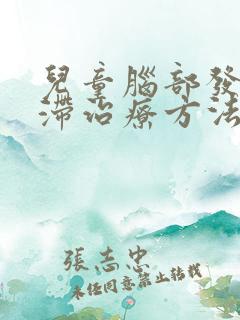 兒童腦部發
滯治療方法
張志忠
未任同意禁止转载